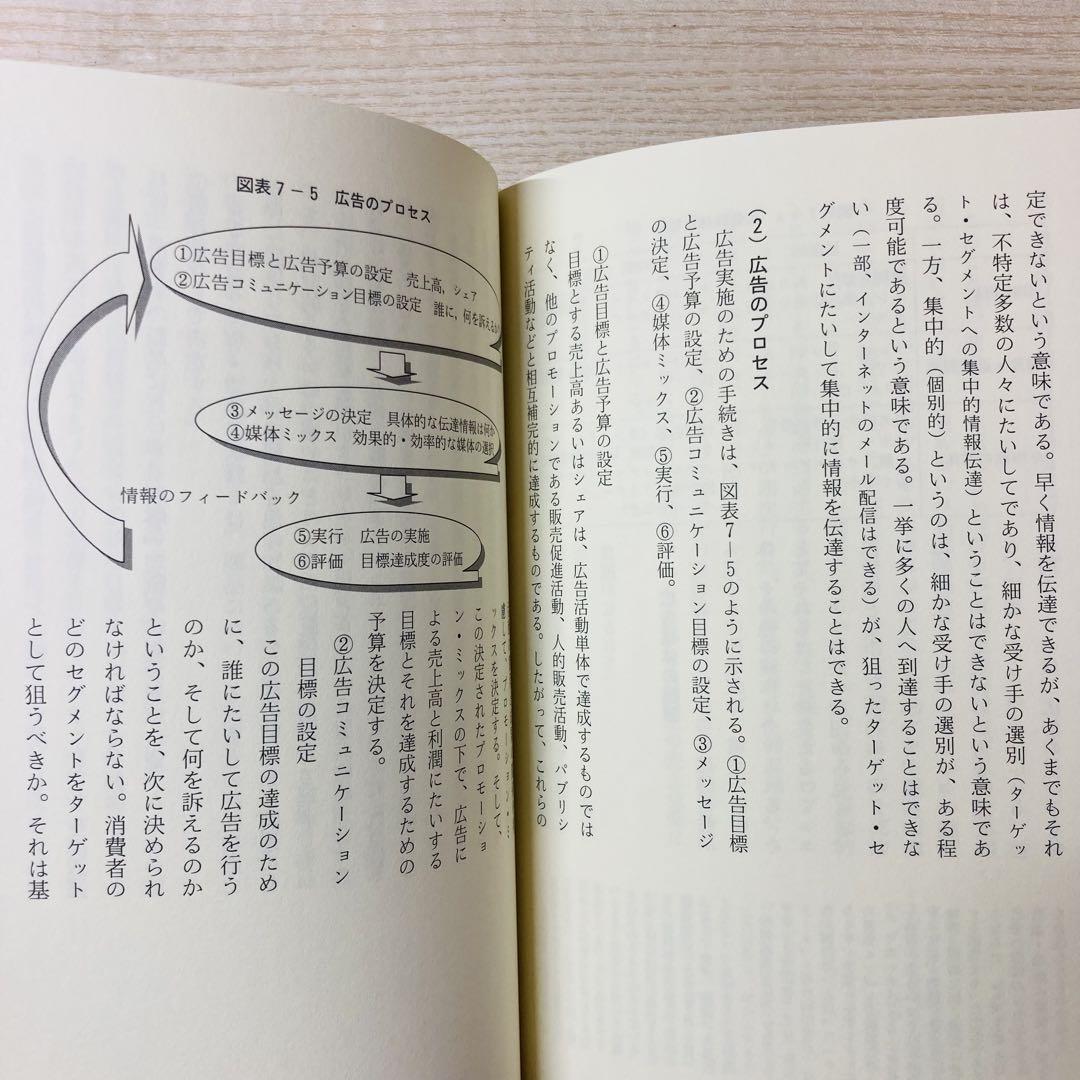 定できないという意味である。早く情報を伝達できるが、あくまでもそれ
は、不特定多数の人々にたいしてであり、細かな受け手の選別（ターゲッ
ト・セグメントへの集中的情報伝達）ということはできないという意味であ
る。一方、集中的（個別的）というのは、細かな受け手の選別が、ある程
度可能であるという意味である。一挙に多くの人へ到達することはできな
い（一部、インターネットのメール配信はできる）が、狙ったターゲット・セ
グメントにたいして集中的に情報を伝達することはできる。
（2）広告のプロセス
広告実施のための手続きは、図表7－5のように示される。①広告目標
と広告予算の設定、②広告コミュニケーション目標の設定、③メッセージ
の決定、④媒体ミックス、⑤実行、⑥評価。
①広告目標と広告予算の設定
目標とする売上高あるいはシェアは、広告活動単体で達成するものでは
なく、他のプロモーションである販売促進活動、人的販売活動、パブリシ
ティ活動などと相互補完的に達成するものである。したがって、これらの
図表7－5　広告のプロセス
①広告目標と広告予算の設定　売上高，シェア
②広告コミュニケーション目標の設定　誰に，何を訴えるか
③メッセージの決定　具体的な伝達情報は何か
④媒体ミックス　効果的・効率的な媒体の選択
情報のフィードバック
⑤実行　広告の実施
⑥評価　目標達成度の評価
慮して、プロモーション・ミ
ックスを決定する。そして、
この決定されたプロモーショ
ン・ミックスの下で、広告に
よる売上高と利潤にたいする
目標とそれを達成するための
予算を決定する。
②広告コミュニケーション
目標の設定
この広告目標の達成のため
に、誰にたいして広告を行う
のか、そして何を訴えるのか
ということを、次に決められ
なければならない。消費者の
どのセグメントをターゲット
として狙うべきか。それは基